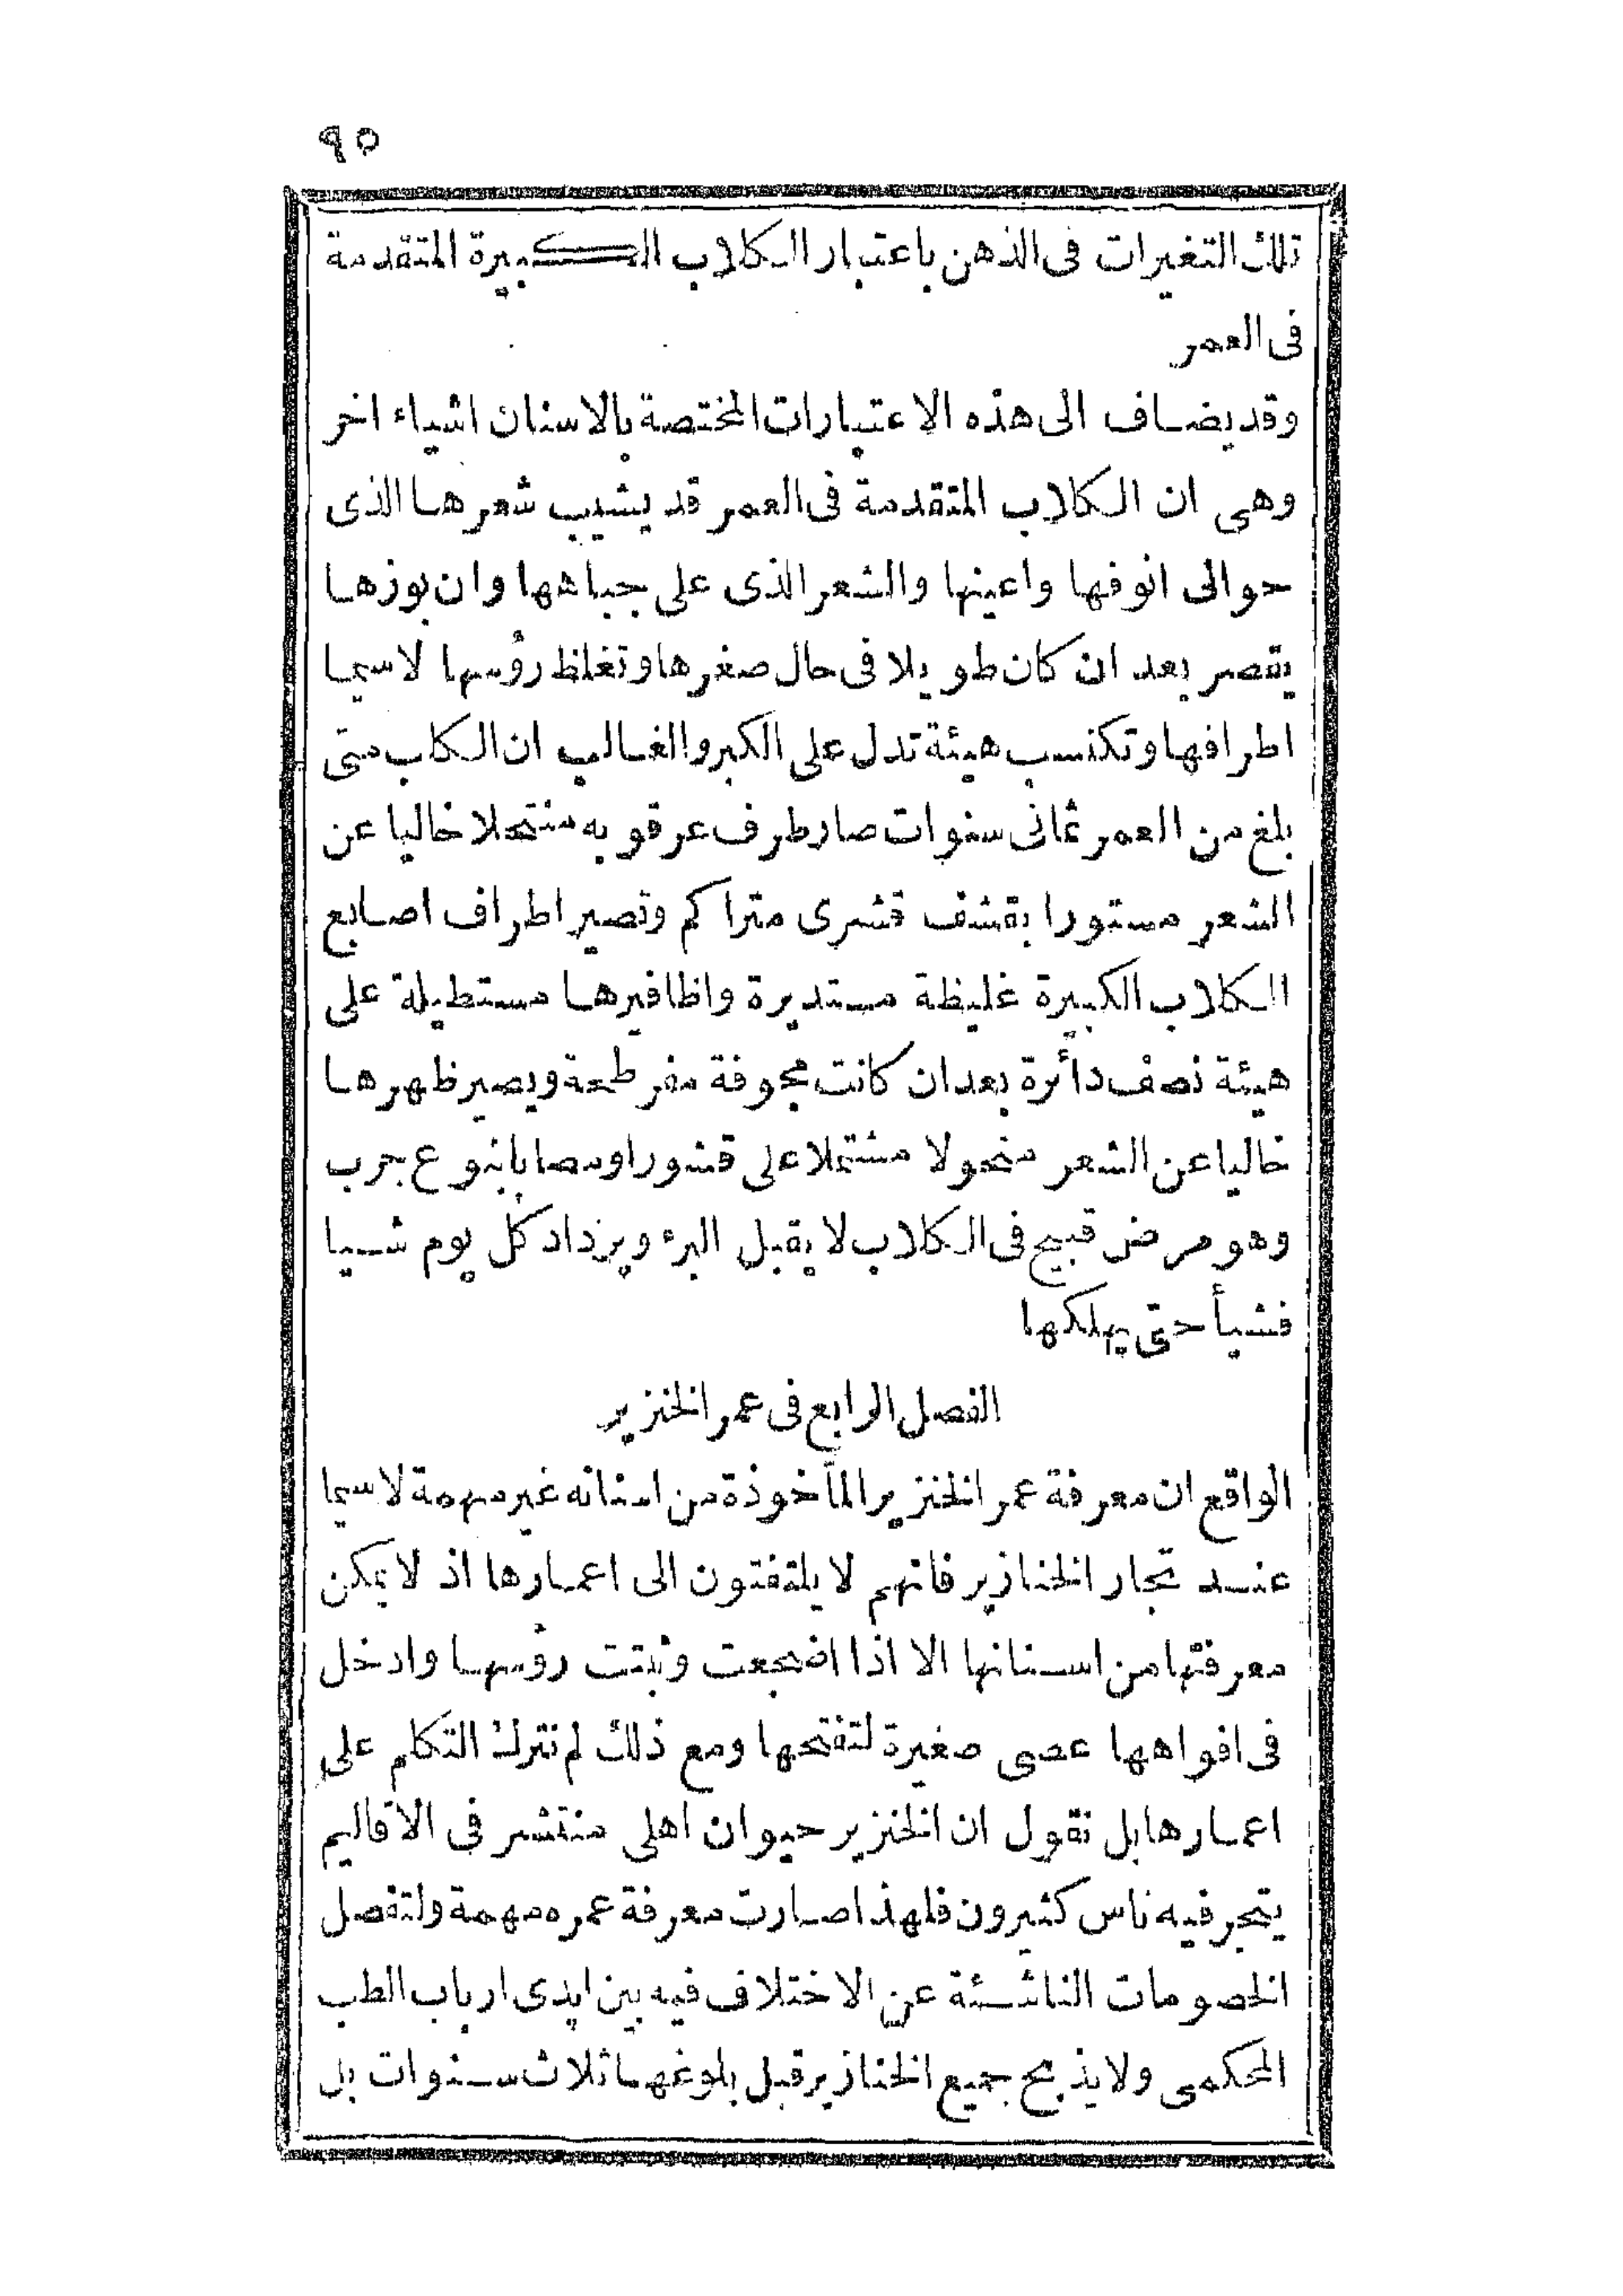 ٩٥
تلك التغيرات فى الذهن باعتبار الكلاب الكبيرة المتقدمة
فى العمر
وقد يضاف الى هذه الاعتبارات المختصة بالاسنان اشياء اخر
وهى ان الكلاب المتقدمة فى العمر قد يشيب شعرها الذى
حوالى انوفها واعينها والشعر الذى على جباهها وان بوزها
يقصر بعد ان كان طويلا فى حال صغرها وتغلظ رؤسها لاسيما
اطرافها وتكتسب هيئة تدل على الكبر والغالب ان الكلب متى
بلغ من العمر ثمانى سنوات صار طرف عرقوبه منتحلا خاليا عن
الشعر مستورا بقشف قشرى متراكم وتصير اطراف اصابع
الكلاب الكبيرة غليظة مستديرة واظافيرها مستطيلة على
هيئة نصف دائرة بعد ان كانت مجوفة مفرطحة ويصير ظهرها
خاليا عن الشعر منحولا مشتملا على قشور او مصابا بنوع جرب
وهو مرض قبيح فى الكلاب لا يقبل البرء ويزداد كل يوم شيا
فشيأ حتى يهلكها
الفصل الرابع فى عمر الخنزير
الواقع ان معرفة عمر الخنزير المأخوذة من اسنانه غير مهمة لاسيما
عند تجار الخنازير فانهم لا يلتفتون الى اعمارها اذ لا يمكن
معرفتها من اسنانها الا اذا اضجعت وثبتت رؤسها وادخل
فى افواهها عصى صغيرة لتفتحها ومع ذلك لم نترك التكلم على
اعمارها بل نقول ان الخنزير حيوان اهلى منتشر فى الاقاليم
يتجر فيه ناس كثيرون فلهذا صارت معرفة عمره مهمة ولتفصل
الخصومات الناشئة عن الاختلاف فيه بين ايدى ارباب الطب
المحكمى ولا يذبح جميع الخنازير قبل بلوغها ثلاث سنوات بل